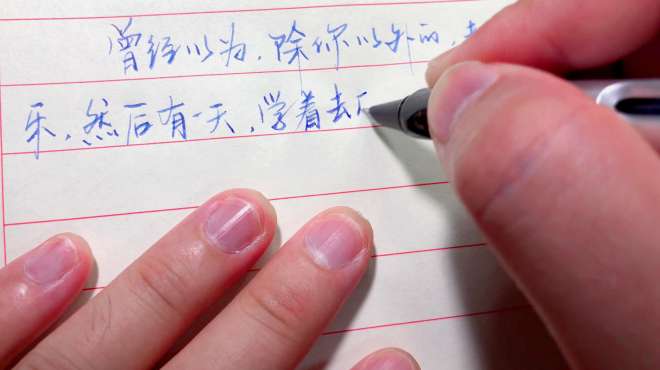 曾经以为，除你以外的，
乐，然后有一天，学着去